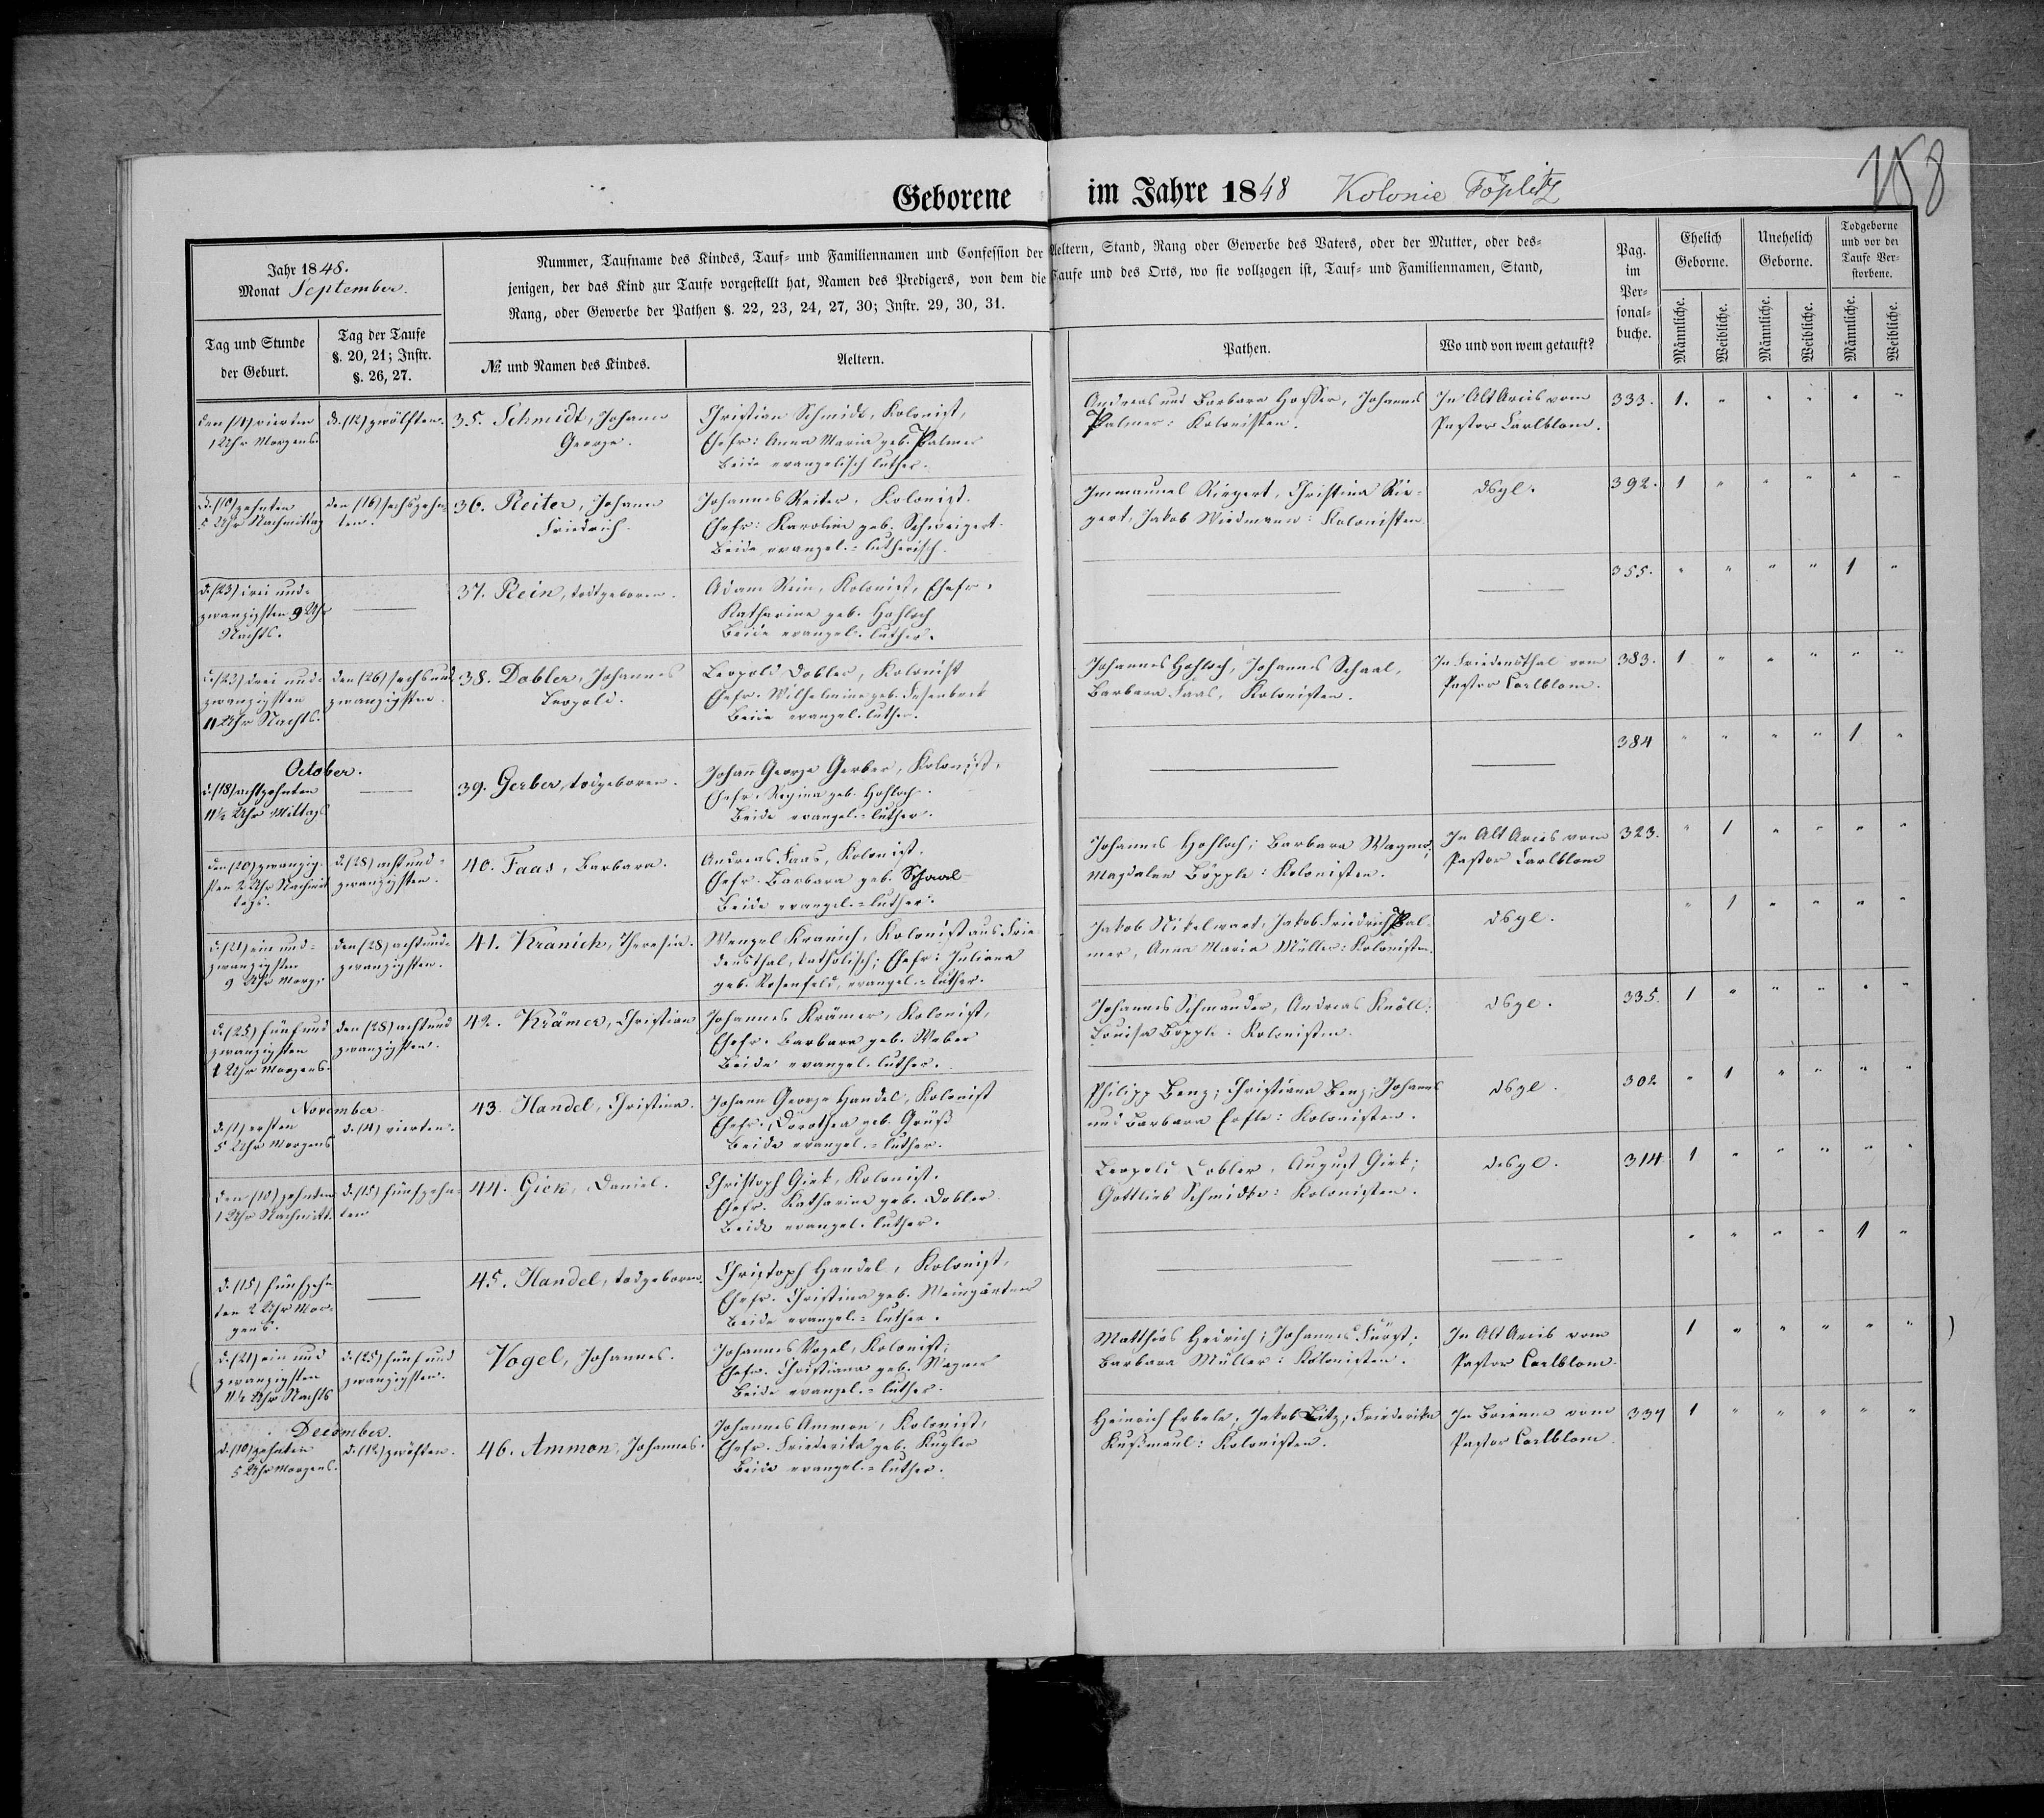 188
Geborene im Jahre 1848 Kolonie Töplitz
Jahr 1848.
Monat September.
Nummer, Taufname des Kindes, Tauf- und Familiennamen und Confession der Aeltern, Stand, Rang oder Gewerbe des Vaters, oder der Mutter, oder des-
jenigen, der das Kind zur Taufe vorgestellt hat, Namen des Predigers, von dem die Taufe und des Orts, wo sie vollzogen ist, Tauf- und Familiennamen, Stand,
Rang, oder Gewerbe der Pathen §. 22, 23, 24, 27, 30; Instr. 29, 30, 31.
Tag und Stunde
der Geburt.
Tag der Taufe
§. 20, 21; Instr.
§. 26, 27.
№ und Namen des Kindes.
Aeltern.
Pathen.
Wo und von wem getauft?
Pag.
im
Per-
sonal-
buche.
Ehelich
Geborne.
Unehelich
Geborne.
Todgeborne
und vor der
Taufe Ver-
storbene.
Männliche.
Weibliche.
Männliche.
Weibliche.
Männliche.
Weibliche.
den (4) vierten
1 Uhr Morgens.
d. (12) zwölften.
35. Schmidt, Johann
George.
Christian Schmidt, Kolonist,
Ehefr: Anna Maria geb. Palmer
Beide evangelisch luther.
Andreas und Barbara Hasser, Johannes
Palmer: Kolonisten.
In Alt Arcis vom
Pastor Carlblom.
333. 1. " " " " "
d. (10) zehnten
5 Uhr Nachmittag
den (16) sechszehn-
ten.
36. Reiter, Johann
Friedrich.
Johannes Reiter, Kolonist.
Ehefr: Karolina geb. Schweigert.
Beide evangel.-lutherisch.
Immanuel Riegert, Christina Rie-
gert, Jakob Wiedmann: Kolonisten.
dsgl.
392. 1 " " " " "
d. (23) drei und-
zwanzigsten 9 Uhr
Nachts.
37. Rein, todtgeboren.
Adam Rein, Kolonist, Ehefr.
Katharina geb. Hohloch
Beide evangel. luther.
355. " " " " 1 "
d. (23) drei und-
zwanzigsten
11 Uhr Nachts.
den (26) sechs und
zwanzigsten.
38. Dobler, Johannes
Leopold.
Leopold Dobler, Kolonist
Ehefr. Wilhelmine geb. Fesenbeck
Beide evangel. luther.
Johannes Hohloch, Johannes Schaal,
Barbara Faas, Kolonisten.
In Friedensthal vom
Pastor Carlblom.
383. 1 " " " " "
October.
d. (18) achtzehnten
11½ Uhr Mittags
39. Gerber, todgeboren.
Johann George Gerber, Kolonist,
Ehefr. Regina geb. Hohloch.
Beide evangel.-luther.
384 " " " " 1 "
den (20) zwanzig-
sten 2 Uhr Nachmit
tags.
d. (28) acht und-
zwanzigsten.
40. Faas, Barbara.
Andreas Faas, Kolonist.
Ehefr. Barbara geb. Schaal
Beide evangel.-luther.
Johannes Hohloch; Barbara Wagner;
Magdalena Böpple: Kolonisten.
In Alt Arcis vom
Pastor Carlblom
323. " 1 " " " "
d. (21) ein und-
zwanzigsten
9 Uhr Morg.
den (28) acht und-
zwanzigsten.
41. Kranich, Theresia.
Wenzel Kranich, Kolonist aus Frie-
densthal, katholisch; Ehefr: Juliana
geb. Rosenfeld, evangel.-luther.
Jakob Nikelwart, Jakob Friedrich Pal-
mer, Anna Maria Müller: Kolonisten.
dsgl.
" 1 " " " "
d. (25) fünf und
zwanzigsten
1 Uhr Morgens.
den (28) acht und
zwanzigsten.
42. Krämer, Christian
Johannes Krämer, Kolonist,
Ehefr. Barbara geb. Weber
Beide evangel. luther.
Johannes Schmauder, Andreas Knöll;
Louisa Böpple. Kolonisten.
dsgl.
335. 1 " " " " "
November.
d. (1) ersten
5 Uhr Morgens
d. (4) vierten.
43. Handel, Christina.
Johann George Handel, Kolonist
Ehefr. Dorothea geb. Grüß
Beide evangel.-luther.
Philipp Benz; Christiana Benz; Johannes
und Barbara Erfle: Kolonisten.
dsgl.
302 " 1 " " " "
den (10) zehnten
1 Uhr Nachmitt.
d. (15) fünfzehn-
ten
44. Giek, Daniel.
Christoph Giek, Kolonist.
Ehefr. Katharina geb. Dobler
Beide evangel. luther.
Leopold Dobler, August Giek;
Gottlieb Schmidke: Kolonisten.
desgl.
314 1 " " " " "
d. (15) fünfzehn
ten 2 Uhr Mor-
gens.
45. Handel, todgeboren.
Christoph Handel, Kolonist,
Ehefr. Christina geb. Weingärtner
Beide evangel.-luther.
" " " " 1 "
( d. (21) ein und
zwanzigsten
11½ Uhr Nachts
d. (25) fünf und
zwanzigsten.
Vogel, Johannes.
Johannes Vogel, Kolonist;
Ehefr. Christiana geb. Wagner
Beide evangel.-luther.
Matthias Hedrich; Johannes Fürst;
Barbara Müller: Kolonisten.
In Alt Arcis vom
Pastor Carlblom.
1 " " " " " )
December.
d. (10) zehnten
5 Uhr Morgens.
d. (12) zwölften.
46. Ammon, Johannes.
Johannes Ammon, Kolonist,
Ehefr. Friederika geb. Kugler
Beide evangel.-luther.
Heinrich Erbele; Jakob Litz; Friederika
Kußmaul: Kolonisten.
In Brienne vom
Pastor Carlblom
334 1 " " " " "